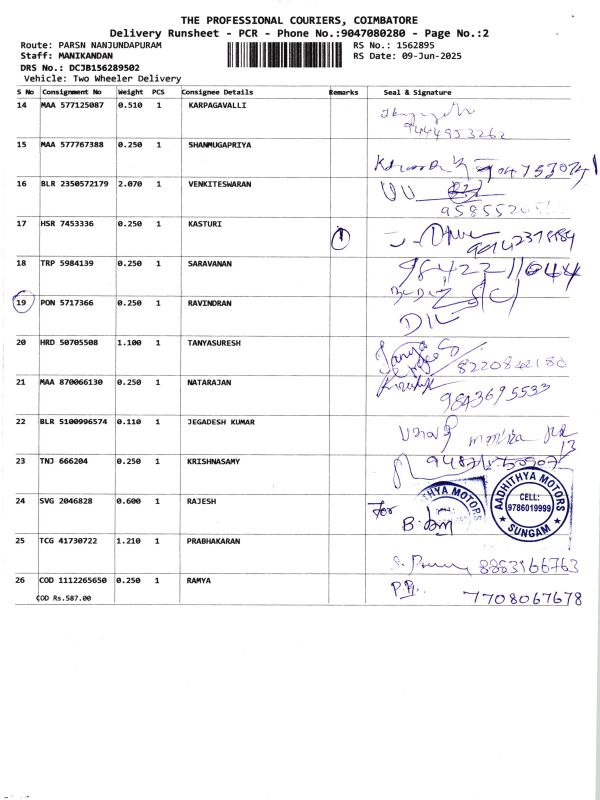 THE PROFESSIONAL COURIERS, COIMBATORE
Delivery Runsheet - PCR - Phone No.:9047080280 - Page No.:2
Route: PARSN NANJUNDAPURAM
RS No.: 1562895
Staff: MANIKANDAN
RS Date: 09-Jun-2025
DRS No.: DCJB156289502
Vehicle: Two Wheeler Delivery
S No Consignment No Weight PCS Consignee Details Remarks Seal & Signature
14 MAA 577125087 0.510 1 KARPAGAVALLI
9444953262
15 MAA 577767388 0.250 1 SHANMUGAPRIYA
16 BLR 2350572179 2.070 1 VENKITESWARAN
17 HSR 7453336 0.250 1 KASTURI
18 TRP 5984139 0.250 1 SARAVANAN
98422 11044
19 PON 5717366 0.250 1 RAVINDRAN
20 HRD 50705508 1.100 1 TANYASURESH
Tanya
8220842180
21 MAA 870066130 0.250 1 NATARAJAN
9843695533
22 BLR 5100996574 0.110 1 JEGADESH KUMAR
23 TNJ 666204 0.250 1 KRISHNASAMY
24 SVG 2046828 0.600 1 RAJESH
For
THYA MOTORS
AADHITHYA MOTORS
CELL:
9786019999
SUNGAM
25 TCG 41730722 1.210 1 PRABHAKARAN
8883166763
26 COD 1112265650 0.250 1 RAMYA
7708067678
COD Rs.587.00